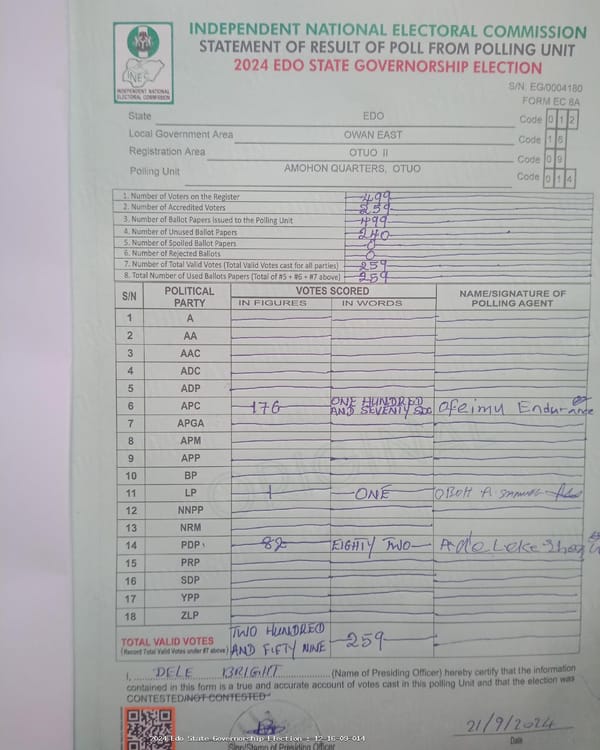 INDEPENDENT NATIONAL ELECTORAL COMMISSION
STATEMENT OF RESULT OF POLL FROM POLLING UNIT
2024 EDO STATE GOVERNORSHIP ELECTION
INEC
INDEPENDENT NATIONAL
ELECTORAL COMMISSION
S/N. EG/0004180
FORM EC 8A
State EDO Code 0 1 2
Local Government Area OWAN EAST Code 1 6
Registration Area OTUO II Code 0 9
Polling Unit AMOHON QUARTERS, OTUO Code 0 1 4
1. Number of Voters on the Register 499
2. Number of Accredited Voters 259
3. Number of Ballot Papers Issued to the Polling Unit 499
4. Number of Unused Ballot Papers 240
5. Number of Spoiled Ballot Papers 0
6. Number of Rejected Ballots 0
7. Number of Total Valid Votes (Total Valid Votes cast for all parties) 259
8. Total Number of Used Ballots Papers (Total of #5 + #6 + #7 above) 259
S/N POLITICAL PARTY VOTES SCORED NAME/SIGNATURE OF POLLING AGENT
IN FIGURES IN WORDS
1 A
2 AA
3 AAC
4 ADC
5 ADP
6 APC 176 ONE HUNDRED AND SEVENTY SIX Ofeimu Endurance
7 APGA
8 APM
9 APP
10 BP
11 LP 1 ONE OBOH A SAMUEL
12 NNPP
13 NRM
14 PDP 82 EIGHTY TWO
15 PRP
16 SDP
17 YPP
18 ZLP
TOTAL VALID VOTES TWO HUNDRED AND FIFTY NINE 259
(Record Total Valid Votes under #7 above)
I, DELE BRIGHT (Name of Presiding Officer) hereby certify that the information
contained in this form is a true and accurate account of votes cast in this polling Unit and that the election was
CONTESTED/NOT CONTESTED
21/9/2024
Date
Sign/Stamp of Presiding Officer
2024 Edo State Governorship Election : 12-16-09-014